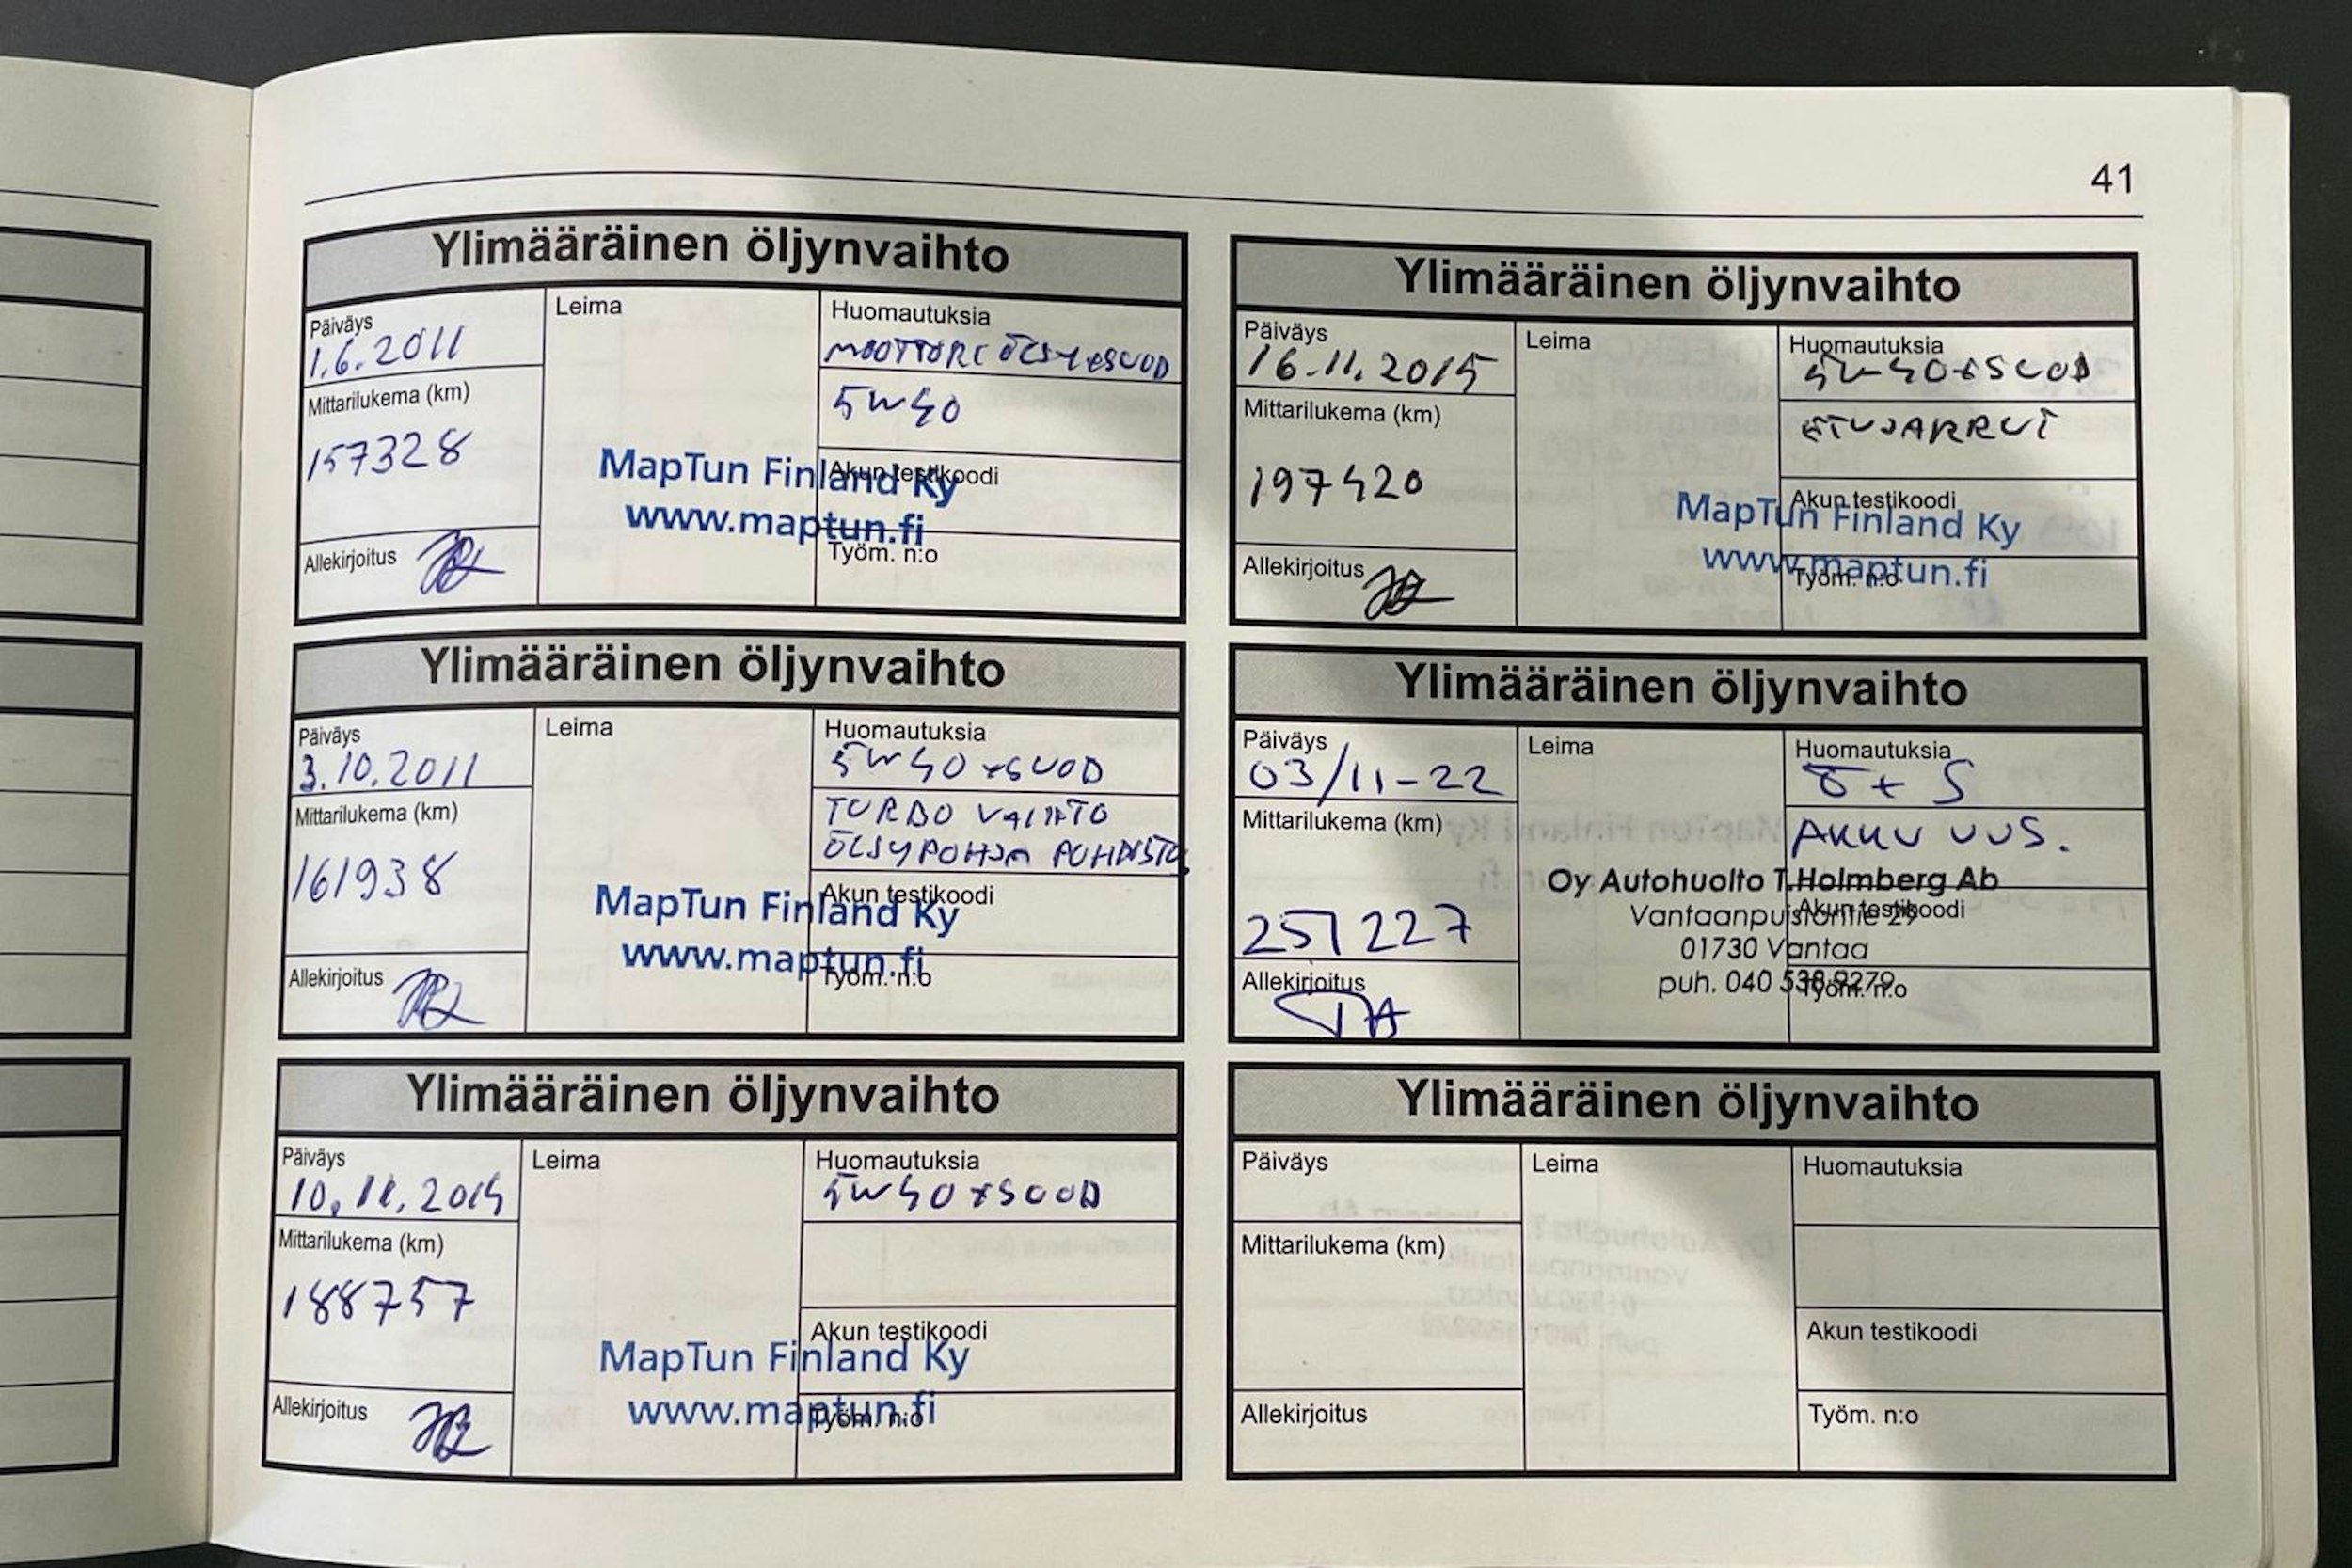 41
Ylimääräinen öljynvaihto
Päiväys
1.6.2011
Mittarilukema (km)
157328
Allekirjoitus
Leima
MapTun Finland Ky
www.maptun.fi
Huomautuksia
MOOTTORI ÖLJY+SUOD
5W40
Akun testikoodi
Työm. n:o
Ylimääräinen öljynvaihto
Päiväys
3.10.2011
Mittarilukema (km)
161938
Allekirjoitus
Leima
MapTun Finland Ky
www.maptun.fi
Huomautuksia
5W40+SUOD
TURBO VAIHTO
ÖLJYPOHJA PUHDISTO
Akun testikoodi
Työm. n:o
Ylimääräinen öljynvaihto
Päiväys
10.11.2014
Mittarilukema (km)
188757
Allekirjoitus
Leima
MapTun Finland Ky
www.maptun.fi
Huomautuksia
5W40+SUOD
Akun testikoodi
Työm. n:o
Ylimääräinen öljynvaihto
Päiväys
16.11.2015
Mittarilukema (km)
197420
Allekirjoitus
Leima
MapTun Finland Ky
www.maptun.fi
Huomautuksia
5W40+SUOD
ETUJARRUT
Akun testikoodi
Työm. n:o
Ylimääräinen öljynvaihto
Päiväys
03/11-22
Mittarilukema (km)
251227
Allekirjoitus
Leima
Oy Autohuolto T.Holmberg Ab
Vantaanpuistontie 29
01730 Vantaa
puh. 040 538 9279
Huomautuksia
Ö + S
AKKU UUS.
Akun testikoodi
Työm. n:o
Ylimääräinen öljynvaihto
Päiväys
Mittarilukema (km)
Allekirjoitus
Leima
Huomautuksia
Akun testikoodi
Työm. n:o